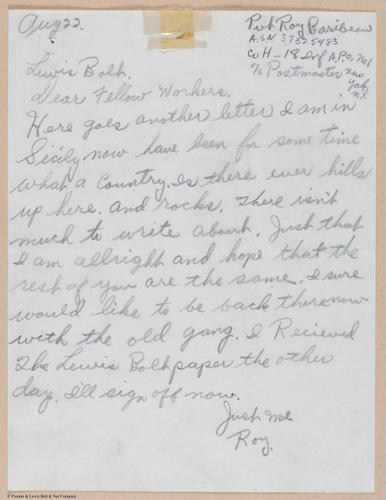 Aug 22.
Pvt Roy Baribeau
A.S.N 37325483
Co H - 18 Inf A.P.O. No 1
% Postmaster New
York
N.Y.
Lewis Bolt.
Dear Fellow Workers.
Here goes another letter I am in
Sicily now have been for some time
what a Country. Is there ever hills
up here. And rocks. There isn't
much to write about. Just that
I am allright and hope that the
rest of you are the same. I sure
would like to be back there now
with the old gang. I Recieved
The Lewis Bolt paper the other
day. I'll sign off now.
Just me
Roy.
© Pioneer & Lewis Bolt & Nut Company